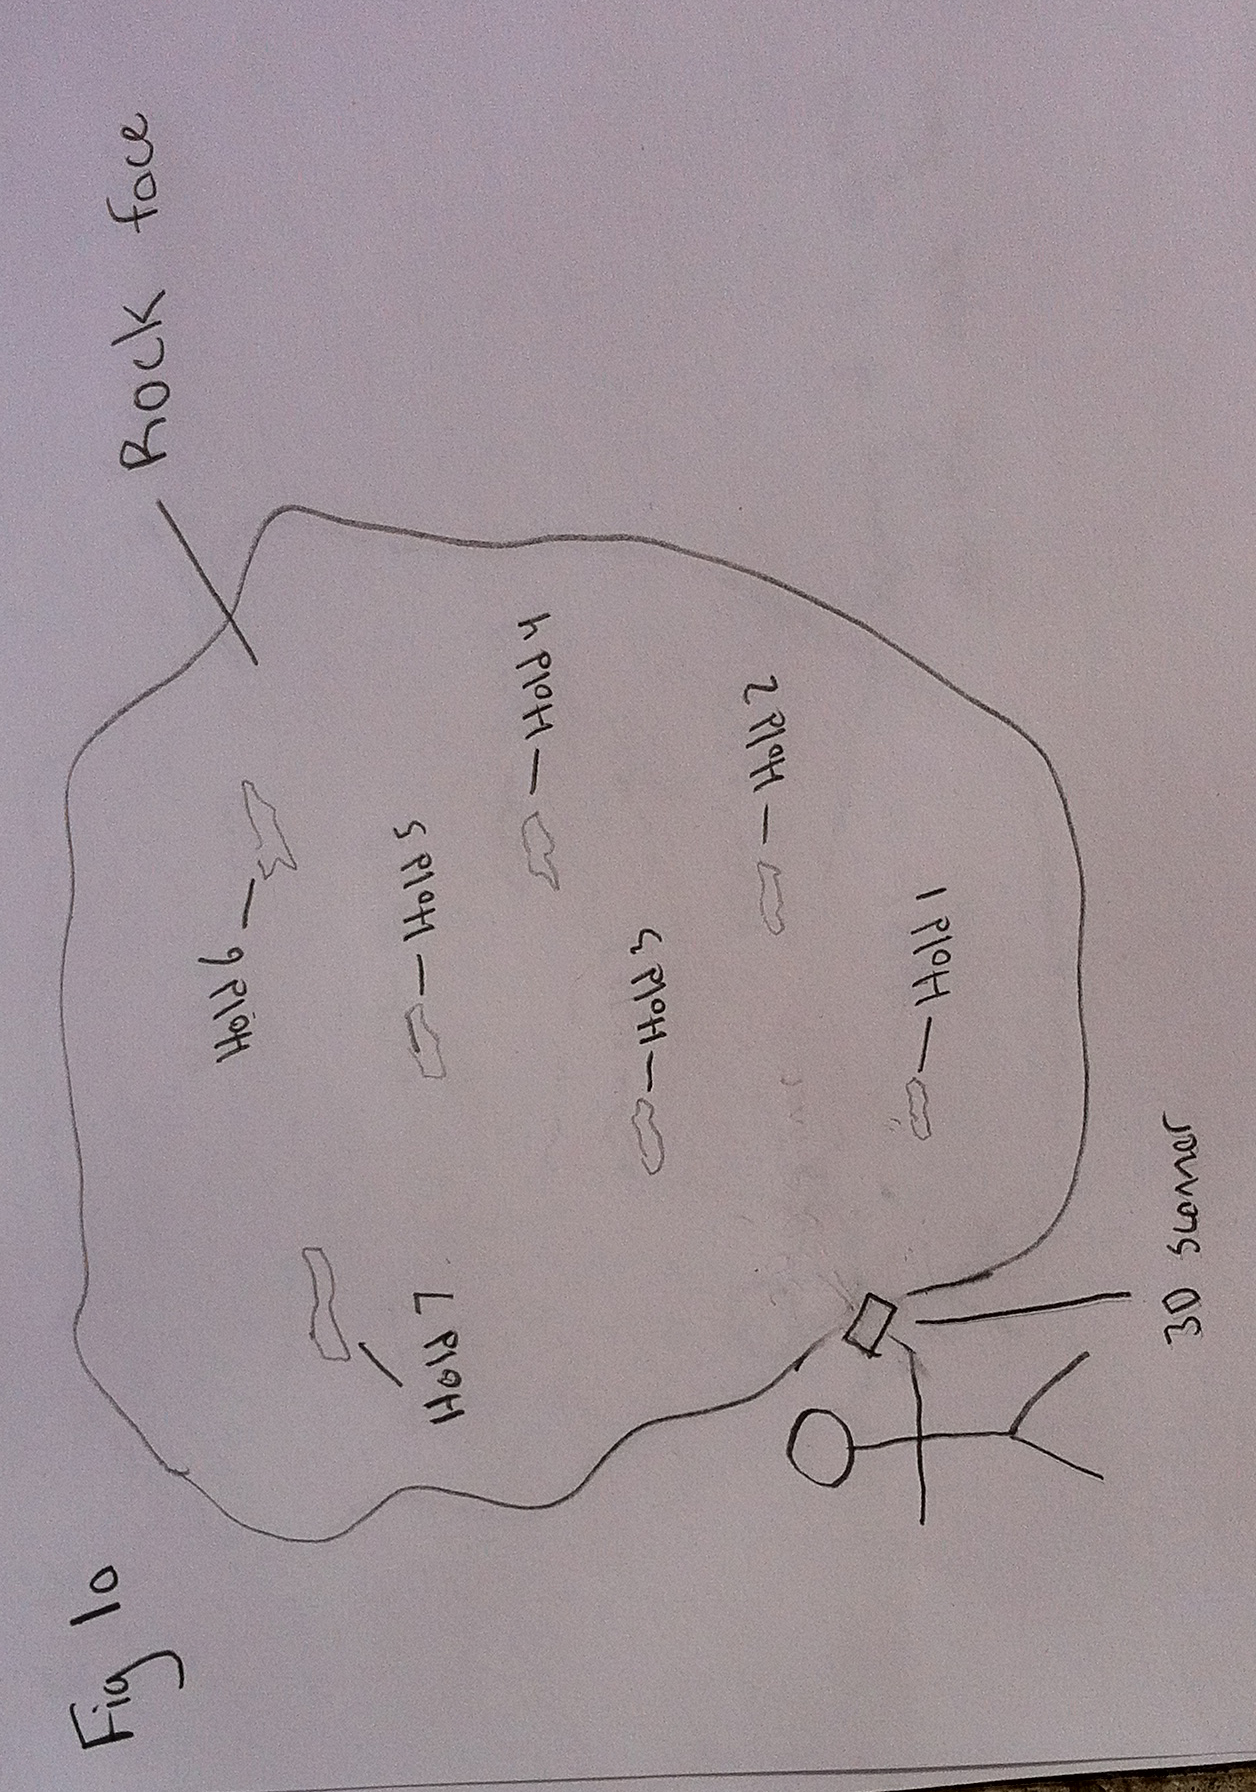 Fig 10
Rock face
Hold 6
Hold 7
Hold 5
Hold 4
Hold 3
Hold 2
Hold 1
3D scanner